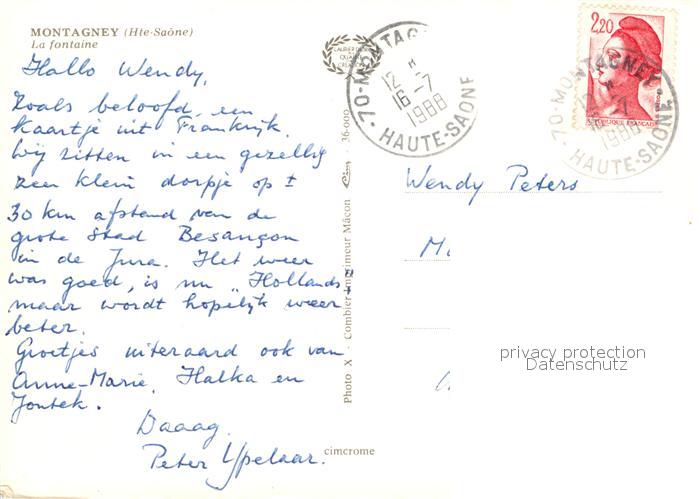 MONTAGNEY (Hte-Saône)
La fontaine
Hallo Wendy,
Zoals beloofd, een
kaartje uit Frankrijk.
Wij zitten in een gezellig
zeer klein dorpje op ±
30 km afstand van de
grote stad Besançon
in de Jura. Het weer
was goed, is nu „Hollands"
maar wordt hopelijk weer
beter.
Groetjes uiteraard ook van
Anne-Marie, Halka en
Joutek.
Daaag
Peter Ypelaar.
LAURIER D'OR
QUALITÉ
70-MONTAGNEY
12 H
16-7
1988
HAUTE-SAONE
2,20
RÉPUBLIQUE FRANÇAISE
70-MONTAGNEY
1988
HAUTE-SAONE
Photo X - Combier Imprimeur Mâcon Cim 36-000
Wendy Peters
privacy protection
Datenschutz
cimcrome